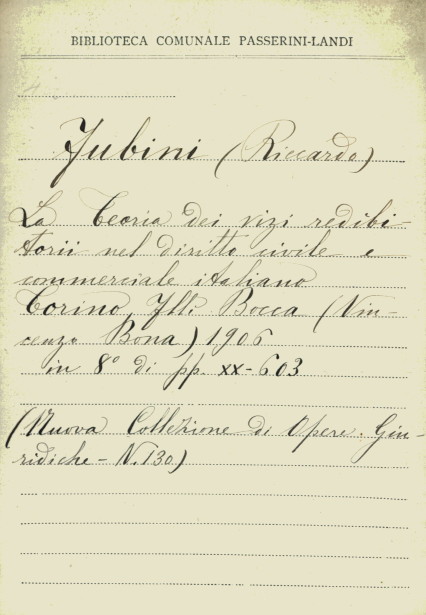 BIBLIOTECA COMUNALE PASSERINI-LANDI
Fubini (Riccardo)
La Teoria dei vizi redibi-
torii nel diritto civile e
commerciale italiano
Torino, Flli Bocca (Vin-
cenzo Bona) 1906
in 8° di pp xx-603
(Nuova Collezione di Opere Giu-
ridiche - N. 130)